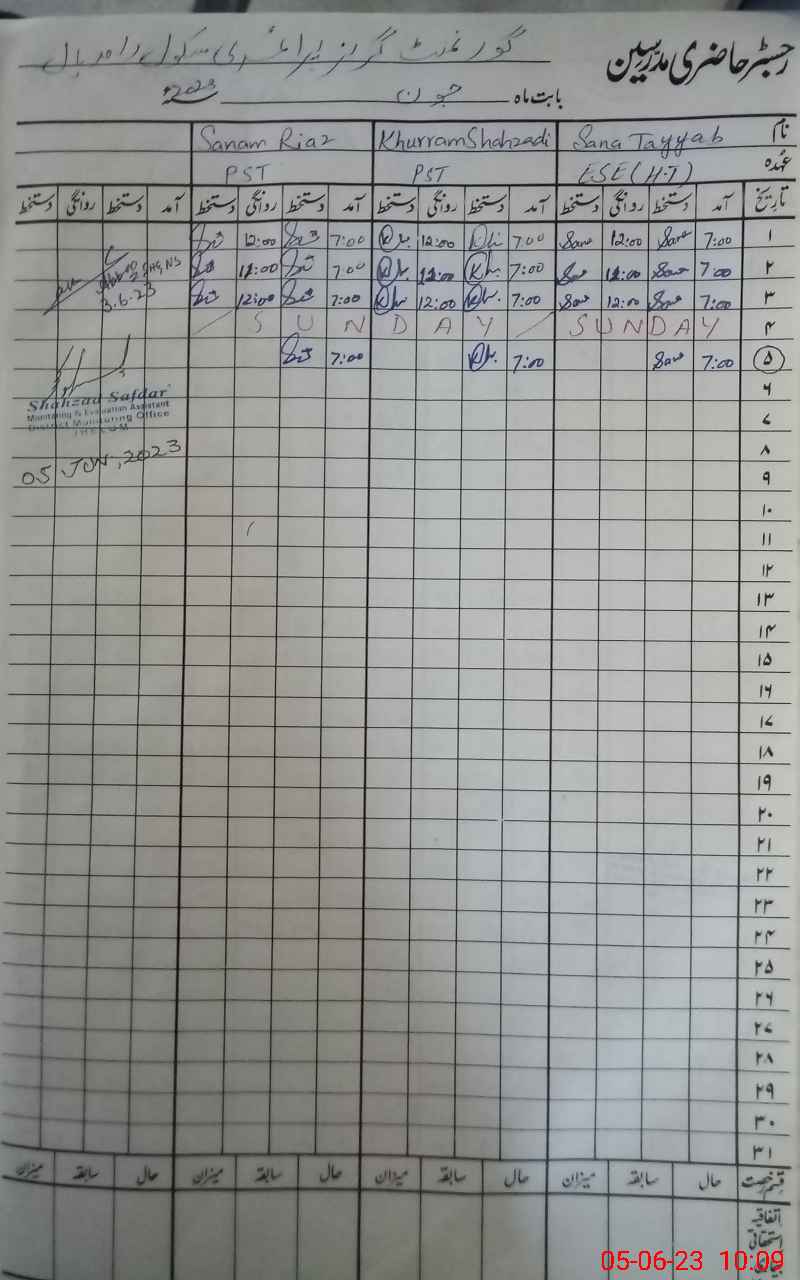 رجسٹر حاضری مدرسین
گورنمنٹ گرلز پرائمری سکول
بابت ماہ جون 2023ء
نام Sana Tayyab KhurramShahzadi Sanam Riaz
عہدہ ESE(H.T) PST PST
تاریخ آمد دستخط روانگی دستخط آمد دستخط روانگی دستخط آمد دستخط روانگی دستخط آمد دستخط روانگی دستخط
۱ 7:00 Sana 12:00 Sana 7:00 12:00 7:00 12:00
۲ 7:00 Sana 12:00 Sana 7:00 12:00 7:00 12:00
۳ 7:00 Sana 12:00 Sana 7:00 12:00 7:00 12:00
3.6.23
۴ SUNDAY SUNDAY
۵ 7:00 Sana 7:00 7:00
Shahzad Safdar
Monitoring & Evaluation Assistant
District Monitoring Office
JHELUM
05 JUN, 2023
۶
۷
۸
۹
۱۰
۱۱
۱۲
۱۳
۱۴
۱۵
۱۶
۱۷
۱۸
۱۹
۲۰
۲۱
۲۲
۲۳
۲۴
۲۵
۲۶
۲۷
۲۸
۲۹
۳۰
۳۱
قسم رخصت حال سابقہ میزان حال سابقہ میزان حال سابقہ میزان حال سابقہ میزان
اتفاقیہ
استحقاقی
بیماری
05-06-23 10:09